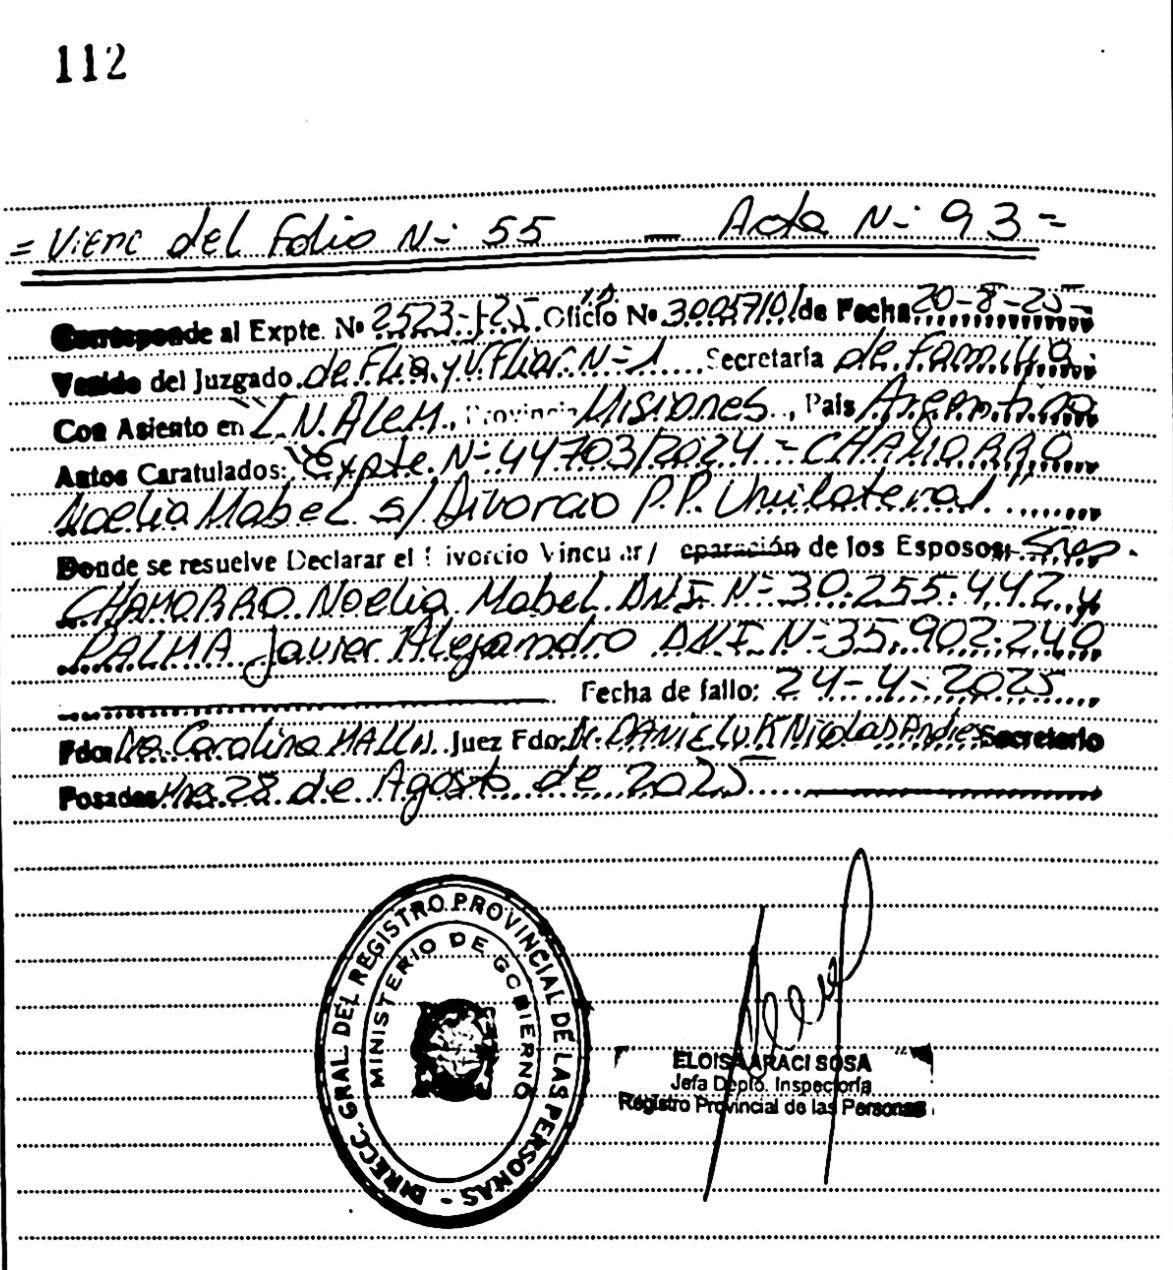 112
= Viene del Folio N- 55 — Acta N- 93 =
Corresponde al Expte. Nº 2523-J-25. Oficio Nº 3005710/ de Fecha 20-8-25-
Venido del Juzgado de Flia. y V. Fliar. N-1 Secretaría de Familia.
Con Asiento en "L.N. ALEM., Provincia Misiones., País Argentina
Autos Caratulados: "Expte. N- 44703/2024 - CHAMORRO
Noelia Mabel s/ Divorcio P.P. Unilateral"
Donde se resuelve Declarar el Divorcio Vincular/ eparación de los Esposos: Sres.
CHAMORRO Noelia Mabel DNI N- 30.255.442 y
PALMA Javier Alejandro DNI N- 35.902.240
Fecha de fallo: 24-4-2025
Fdo: Dra. Carolina Juez Fdo: Dr. Nicolas Andres Secretario
Posadas Mnes. 28 de Agosto de 2025
DIRECC. GRAL. DEL REGISTRO PROVINCIAL DE LAS PERSONAS -
MINISTERIO DE GOBIERNO
ELOISA ARACI SOSA
Jefa Depto. Inspectoría
Registro Provincial de las Personas